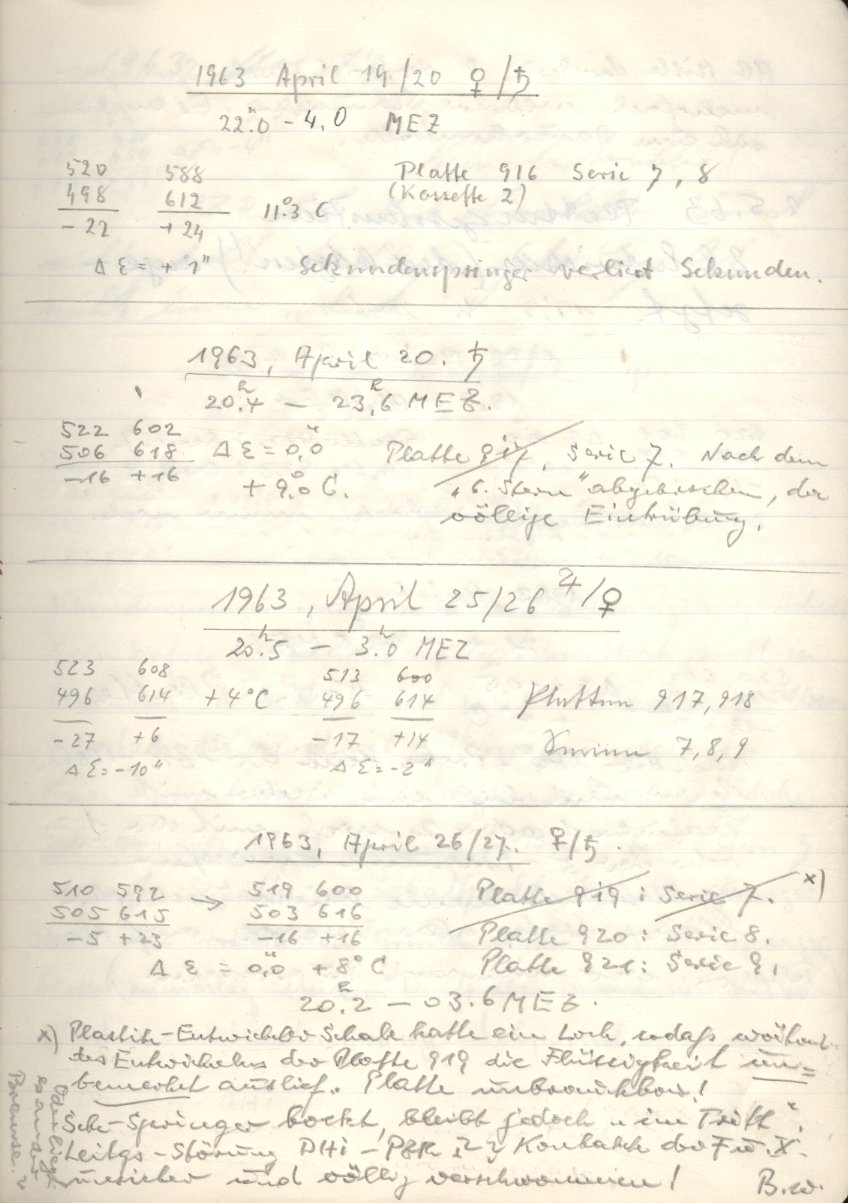 1963 April 19/20 ♀/♄
22.0 - 4.0 MEZ
520 588 Platte 916 Serie 7, 8
498 612 11.3 C (Kassette 2)
-22 +24
Δ ε = + 1" Sekundenspringer verliert Sekunden.
1963, April 20. ♄
20.4 — 23.6 MEZ.
522 602
506 618 Δ ε = 0.0 Platte 917, Serie 7. Nach dem
-16 +16 + 9.0 C. "6. Stern" abgebrochen, da
völlige Eintrübung.
1963, April 25/26 ♃/♀
20.5 — 3.0 MEZ
523 608 513 600
496 614 +4°C 496 614 Platten 917, 918
-27 +6 -17 +14 Serien 7, 8, 9
Δ ε = -10" Δ ε = -2"
1963, April 26/27. ♀/♄.
510 592 → 519 600 Platte 919 : Serie 7. x)
505 615 503 616 Platte 920 : Serie 8.
-5 +23 -16 +16
Δ ε = 0.0 +8° C Platte 921 : Serie 9.
20.2 — 03.6 MEZ.
x) Plastik-Entwickler Schale hatte ein Loch, sodaß während
des Entwickelns der Platte 919 die Flüssigkeit un=
bemerkt auslief. Platte unbrauchbar!
Sek-Springer bockt, bleibt jedoch "im Tritt".
Leitgs-Störung DHi - Kontakte der
unsicher und völlig verschwommen!